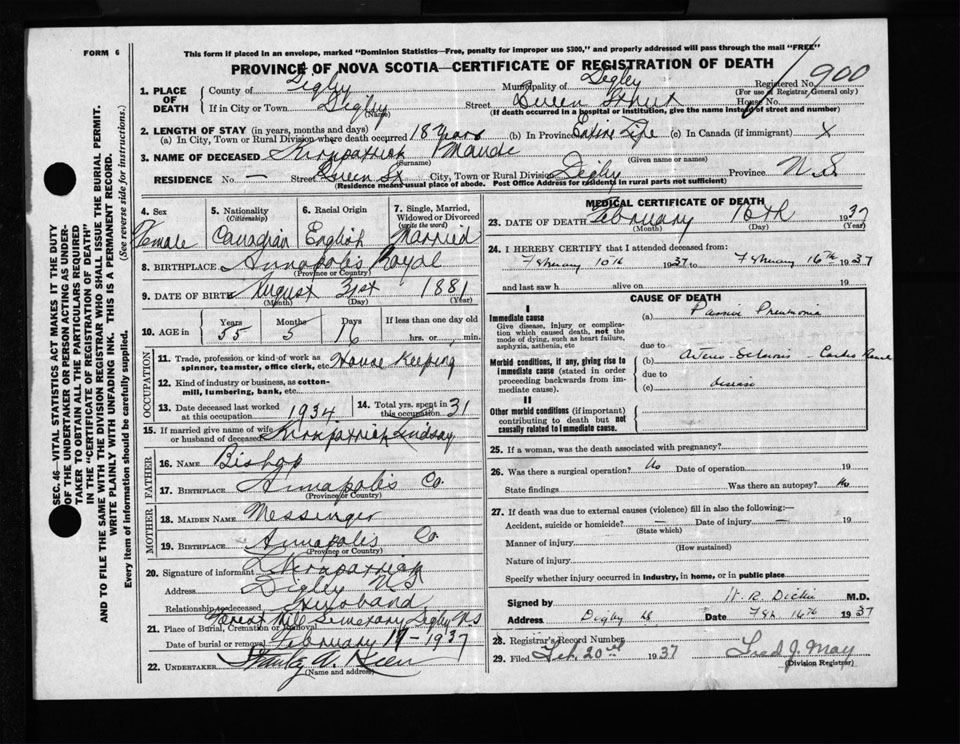 FORM 6
This form if placed in an envelope, marked "Dominion Statistics—Free, penalty for improper use $300," and properly addressed will pass through the mail "FREE"
PROVINCE OF NOVA SCOTIA—CERTIFICATE OF REGISTRATION OF DEATH
SEC. 46—VITAL STATISTICS ACT MAKES IT THE DUTY
OF THE UNDERTAKER OR PERSON ACTING AS UNDER-
TAKER TO OBTAIN ALL THE PARTICULARS REQUIRED
IN THE "CERTIFICATE OF REGISTRATION OF DEATH"
AND TO FILE THE SAME WITH THE DIVISION REGISTRAR WHO SHALL ISSUE THE BURIAL PERMIT.
WRITE PLAINLY WITH UNFADING INK. THIS IS A PERMANENT RECORD.
Every item of Information should be carefully supplied. (See reverse side for instructions.)
1. PLACE OF DEATH
County of Digby Municipality of Digby Registered No. 900
(For use of Registrar General only)
If in City or Town Digby Street Queen Street House No.
(Name) (If death occurred in a hospital or institution, give the name instead of street and number)
2. LENGTH OF STAY (in years, months and days)
(a) In City, Town or Rural Division where death occurred 18 Years (b) In Province Entire Life (c) In Canada (if immigrant) X
3. NAME OF DECEASED Kirkpatrick Maude
(Surname) (Given name or names)
RESIDENCE No. — Street Queen St City, Town or Rural Division Digby Province N.S
(Residence means usual place of abode. Post Office Address for residents in rural parts not sufficient)
4. Sex Female
5. Nationality (Citizenship) Canadian
6. Racial Origin English
7. Single, Married, Widowed or Divorced (write the word) Married
8. BIRTHPLACE Annapolis Royal
(Province or Country)
9. DATE OF BIRTH August 31st 1881
(Month) (Day) (Year)
10. AGE in Years 55 Months 5 Days 16 If less than one day old
hrs. or min.
OCCUPATION
11. Trade, profession or kind of work as spinner, teamster, office clerk, etc. House Keeping
12. Kind of industry or business, as cotton-mill, lumbering, bank, etc.
13. Date deceased last worked at this occupation 1934
14. Total yrs. spent in this occupation 31
15. If married give name of wife or husband of deceased Kirkpatrick Lindsay
FATHER
16. NAME Bishop
17. BIRTHPLACE Annapolis Co.
(Province or Country)
MOTHER
18. MAIDEN NAME Messinger
19. BIRTHPLACE Annapolis Co
(Province or Country)
20. Signature of informant L Kirkpatrick
Address Digby N.S
Relationship to deceased Husband
21. Place of Burial, Cremation or Removal Forest Hill Cemetary Digby N.S
Date of burial or removal February 17 - 1937
22. UNDERTAKER
(Name and address)
MEDICAL CERTIFICATE OF DEATH
23. DATE OF DEATH February 16th 1937
(Month) (Day) (Year)
24. I HEREBY CERTIFY that I attended deceased from:
February 10th 1937 to February 16th 1937
and last saw h alive on 19
CAUSE OF DEATH
I
Immediate cause
Give disease, injury or complica-
tion which caused death, not the
mode of dying, such as heart failure,
asphyxia, asthenia, etc
(a) Passive Pneumonia
due to
Morbid conditions, if any, giving rise to
immediate cause (stated in order
proceeding backwards from im-
mediate cause).
(b) Arterio-Sclerosis - Cardio Renal
due to
(c) disease
II
Other morbid conditions (if important)
contributing to death but not
causally related to immediate cause.
25. If a woman, was the death associated with pregnancy?
26. Was there a surgical operation? No Date of operation 19
State findings Was there an autopsy? No
27. If death was due to external causes (violence) fill in also the following:—
Accident, suicide or homicide? — Date of injury — 19
(State which)
Manner of injury
(How sustained)
Nature of injury
Specify whether injury occurred in industry, in home, or in public place
Signed by W. R. Dickie M.D.
Address Digby NS Date Feb. 16th 1937
28. Registrar's Record Number
29. Filed Feb. 20 1937 Fred J. May
(Division Registrar)